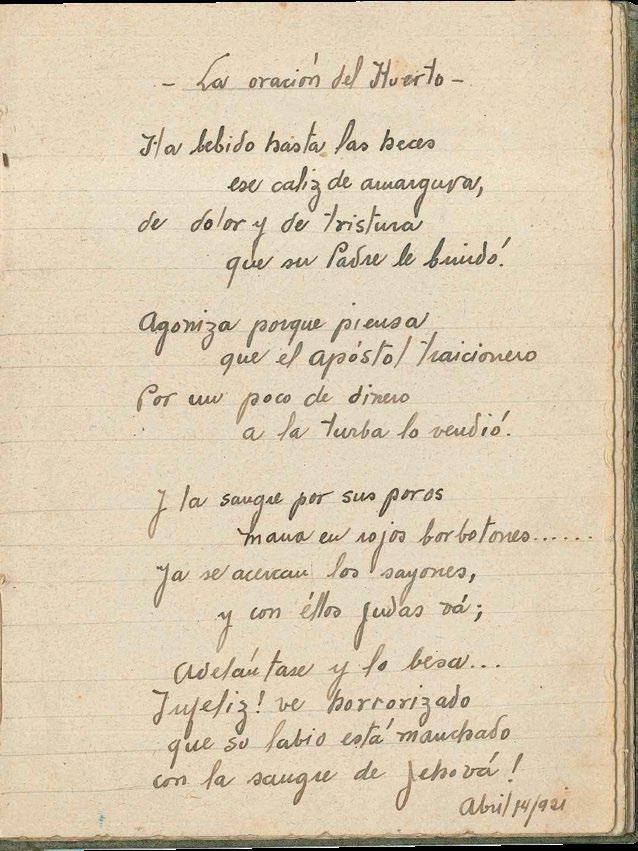 - La oración del Huerto -
Ha bebido hasta las heces
ese caliz de amargura,
de dolor y de tristura
que su Padre le brindó!
Agoniza porque piensa
que el apóstol traicionero
Por un poco de dinero
a la turba lo vendió.
Y la sangre por sus poros
mana en rojos borbotones......
Ya se acercan los sayones,
y con éllos Judas vá;
Adelántase y lo besa...
Infeliz! ve horrorizado
que su labio está manchado
con la sangre de Jehová!
Abril 14/921